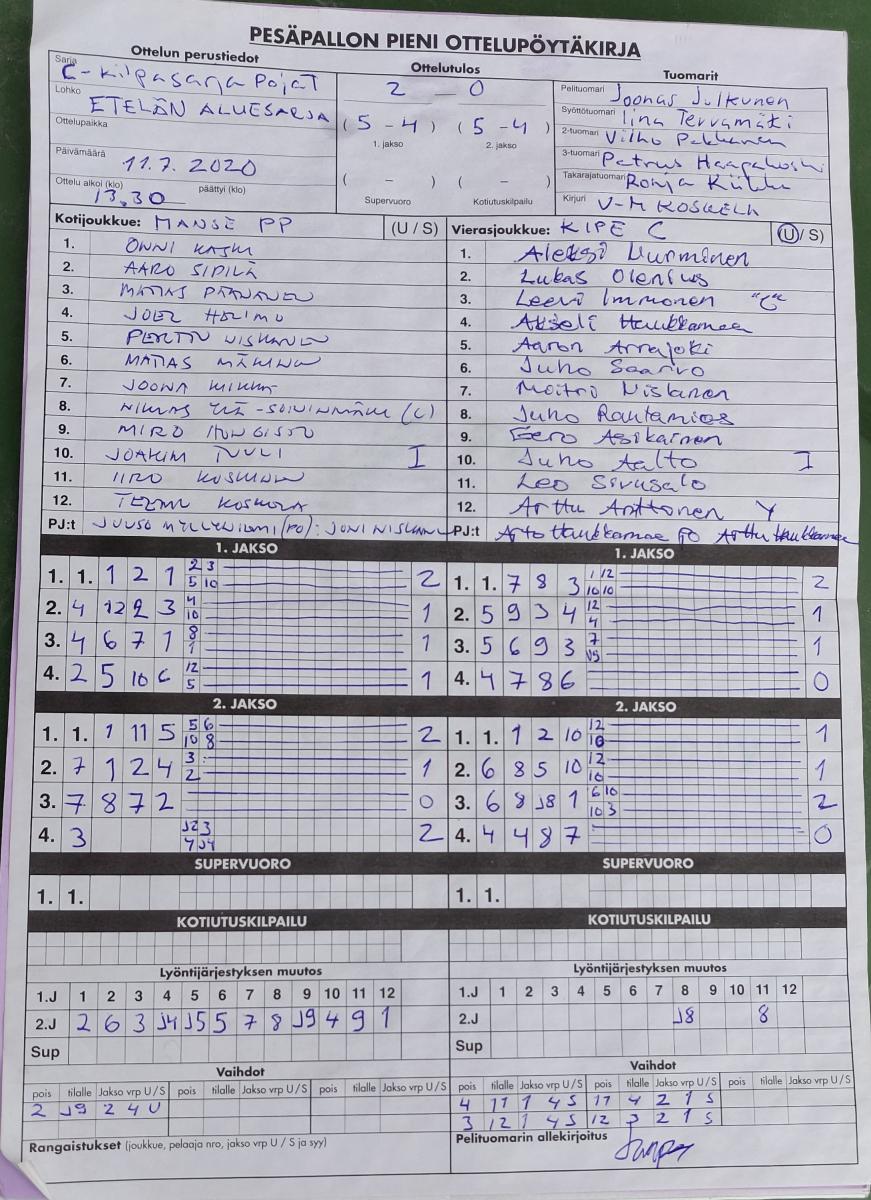 PESÄPALLON PIENI OTTELUPÖYTÄKIRJA
Ottelun perustiedot
Sarja C-kilpasarja Pojat
Lohko ETELÄN ALUESARJA
Ottelupaikka
Päivämäärä 11.7.2020
Ottelu alkoi (klo) 13.30 päättyi (klo)
Ottelutulos
2 - 0
(5 - 4) (5 - 4)
1. jakso 2. jakso
( - ) ( - )
Supervuoro Kotiutuskilpailu
Tuomarit
Pelituomari Joonas Julkunen
Syöttötuomari Iina Tervamäki
2-tuomari Vilho Pekkanen
3-tuomari Petrus Haapakoski
Takarajatuomari Ronja
Kirjuri V-M KOSKELA
Kotijoukkue: MANSE PP (U / S)
1. ONNI KASKI
2. AARO SIPILÄ
3. MATIAS PÄÄNANEN
4. JOEL HOLIMO
5. PERTTU NISKANEN
6. MATIAS MÄKINEN
7. JOONA
8. NIKLAS YLÄ-SOININMÄKI (C)
9. MIRO HONGISTO
10. JOAKIM TUULI I
11. IIRO KOSKINEN
12. TEEMU KOSKELA
PJ:t JUUSO MYLLYNIEMI (PO): JONI NISKANEN
Vierasjoukkue: KIPE C (U / S)
1. Aleksi Nurminen
2. Lukas Olenius
3. Leevi Immonen "C"
4. Akseli Haukkamaa
5. Aaron Arrajoki
6. Juho Saarvo
7. Moitri Niskanen
8. Juho Rautamies
9. Eero Asikainen
10. Juho Aalto I
11. Leo Sivusalo
12. Arttu Anttonen Y
PJ:t Arto Haukkamaa PO Arttu Haukkamaa
1. JAKSO
1. 1. 1 2 1 2 3 5 10 2
2. 4 12 2 3 4 10 1
3. 4 6 7 1 8 1 1
4. 2 5 10 6 12 5 1
1. JAKSO
1. 1. 7 8 3 1 12 10 10 2
2. 5 9 3 4 12 4 1
3. 5 6 9 3 7 J5 1
4. 4 7 8 6 0
2. JAKSO
1. 1. 1 11 5 5 6 10 8 2
2. 7 1 2 4 3 2 1
3. 7 8 7 2 0
4. 3 J2 3 4 J4 2
2. JAKSO
1. 1. 1 2 10 12 10 1
2. 6 8 5 10 12 10 1
3. 6 8 J8 1 6 10 10 3 2
4. 4 4 8 7 0
SUPERVUORO
1. 1.
SUPERVUORO
1. 1.
KOTIUTUSKILPAILU
KOTIUTUSKILPAILU
Lyöntijärjestyksen muutos
1.J 1 2 3 4 5 6 7 8 9 10 11 12
2.J 2 6 3 J4 J5 5 7 8 J9 4 9 1
Sup
Lyöntijärjestyksen muutos
1.J 1 2 3 4 5 6 7 8 9 10 11 12
2.J J8 8
Sup
Vaihdot
pois tilalle Jakso vrp U/S pois tilalle Jakso vrp U/S pois tilalle Jakso vrp U/S
2 J9 2 4 U
Vaihdot
pois tilalle Jakso vrp U/S pois tilalle Jakso vrp U/S pois tilalle Jakso vrp U/S
4 11 1 4 S 11 4 2 1 S
3 12 1 4 S 12 3 2 1 S
Rangaistukset (joukkue, pelaaja nro, jakso vrp U / S ja syy)
Pelituomarin allekirjoitus